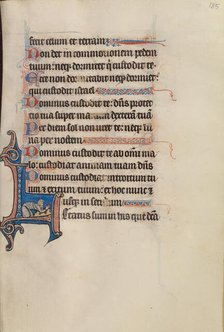 185
fecit celum et terram
Non det in commotionem pedem
tuum: neque dormitet qui custodit te
Ecce non dormitabit neque dormiet:
qui custodit israel
Dominus custodit te: dominus protectio
tua super manum dexteram tuam
Per diem sol non uret te: neque luna
per noctem
Dominus custodit te ab omni malo:
custodiat animam tuam dominus
Dominus custodiat introitum tuum
et exitum tuum: ex hoc nunc et
usque in seculum
Letatus sum in his que dicta